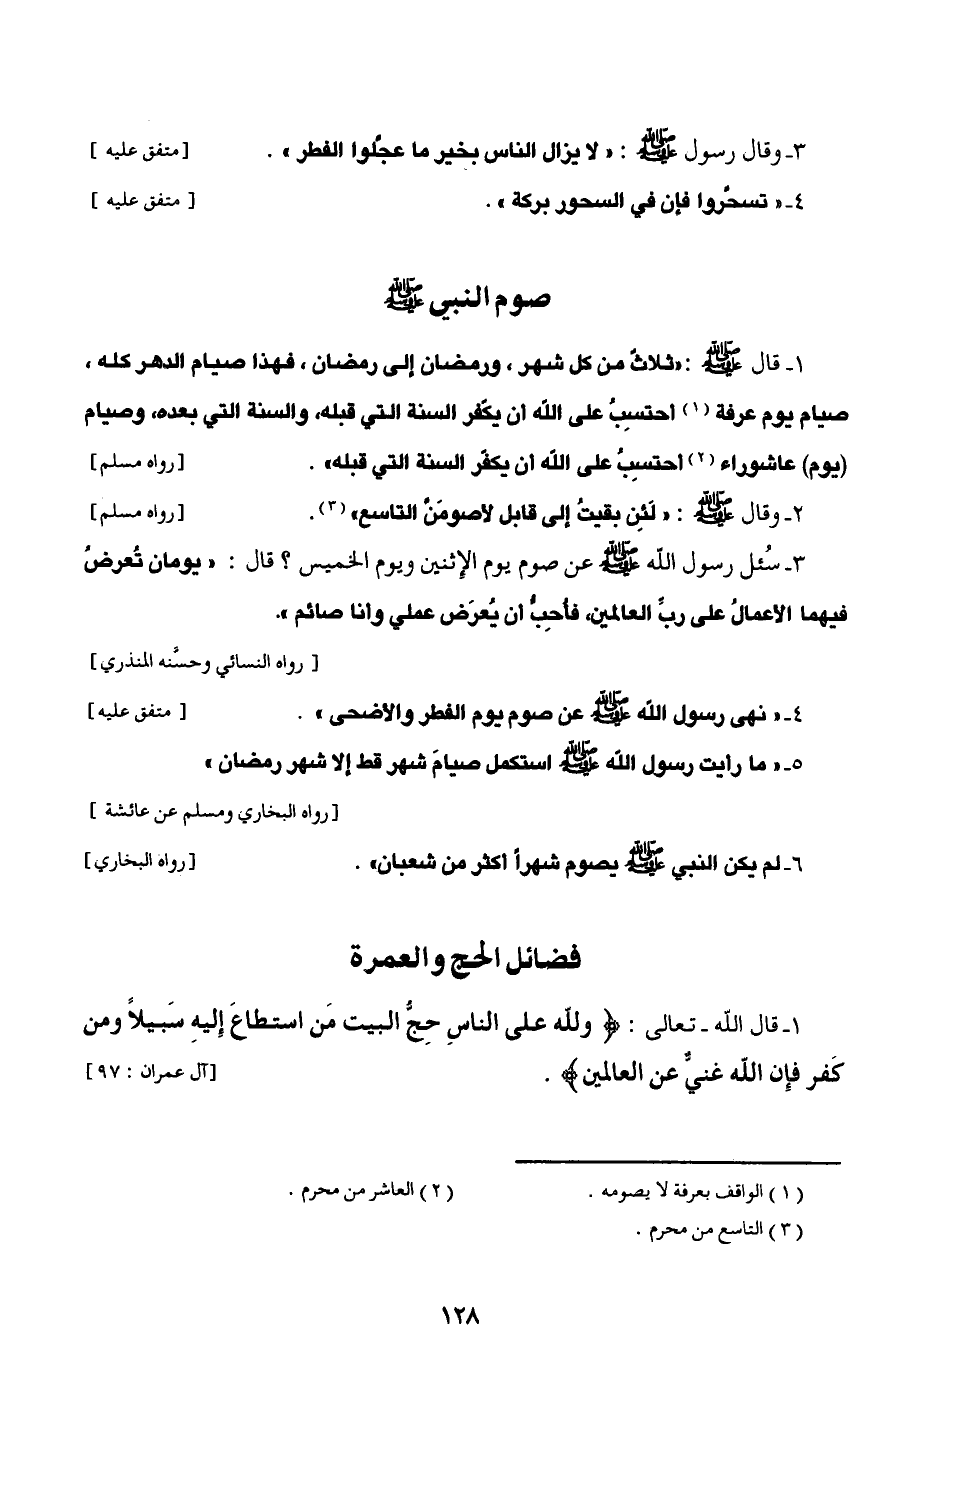 ٣ـ وقال رسول ﷺ : « لا يزال الناس بخير ما عجلُّوا الفطر » . [متفق عليه ]
٤ـ « تسحَّروا فإن في السحور بركة » . [ متفق عليه ]
صوم النبي ﷺ
١ـ قال ﷺ : «ثلاثٌ من كل شهر ، ورمضان إلى رمضان ، فهذا صيام الدهر كله ،
صيام يوم عرفة (١) أحتسبُ على الله أن يكفّر السنة التي قبله، والسنة التي بعده، وصيام
(يوم) عاشوراء (٢) أحتسبُ على الله أن يكفّر السنة التي قبله» . [رواه مسلم]
٢ـ وقال ﷺ : « لَئن بقيتُ إلى قابل لأصومَنَّ التاسع» (٣) . [رواه مسلم]
٣ـ سُئل رسول الله ﷺ عن صوم يوم الإثنين ويوم الخميس ؟ قال : « يومان تُعرضُ
فيهما الأعمالُ على ربِّ العالمين، فأحبُّ أن يُعرَض عملي وأنا صائم ».
[ رواه النسائي وحسَّنه المنذري]
٤ـ « نهى رسول الله ﷺ عن صوم يوم الفطر والأضحى » . [ متفق عليه]
٥ـ « ما رأيت رسول الله ﷺ استكمل صيامَ شهر قط إلا شهر رمضان »
[رواه البخاري ومسلم عن عائشة ]
٦ـ لم يكن النبي ﷺ يصوم شهراً أكثر من شعبان» . [رواه البخاري]
فضائل الحج والعمرة
١ـ قال الله ـ تعالى : ﴿ ولله على الناسِ حِجُّ البيت مَن استطاعَ إليهِ سَبيلاً ومن
كَفر فإن الله غنيٌّ عن العالمين﴾ . [آل عمران : ٩٧]
(١) الواقف بعرفة لا يصومه . (٢) العاشر من محرم .
(٣) التاسع من محرم .
١٢٨